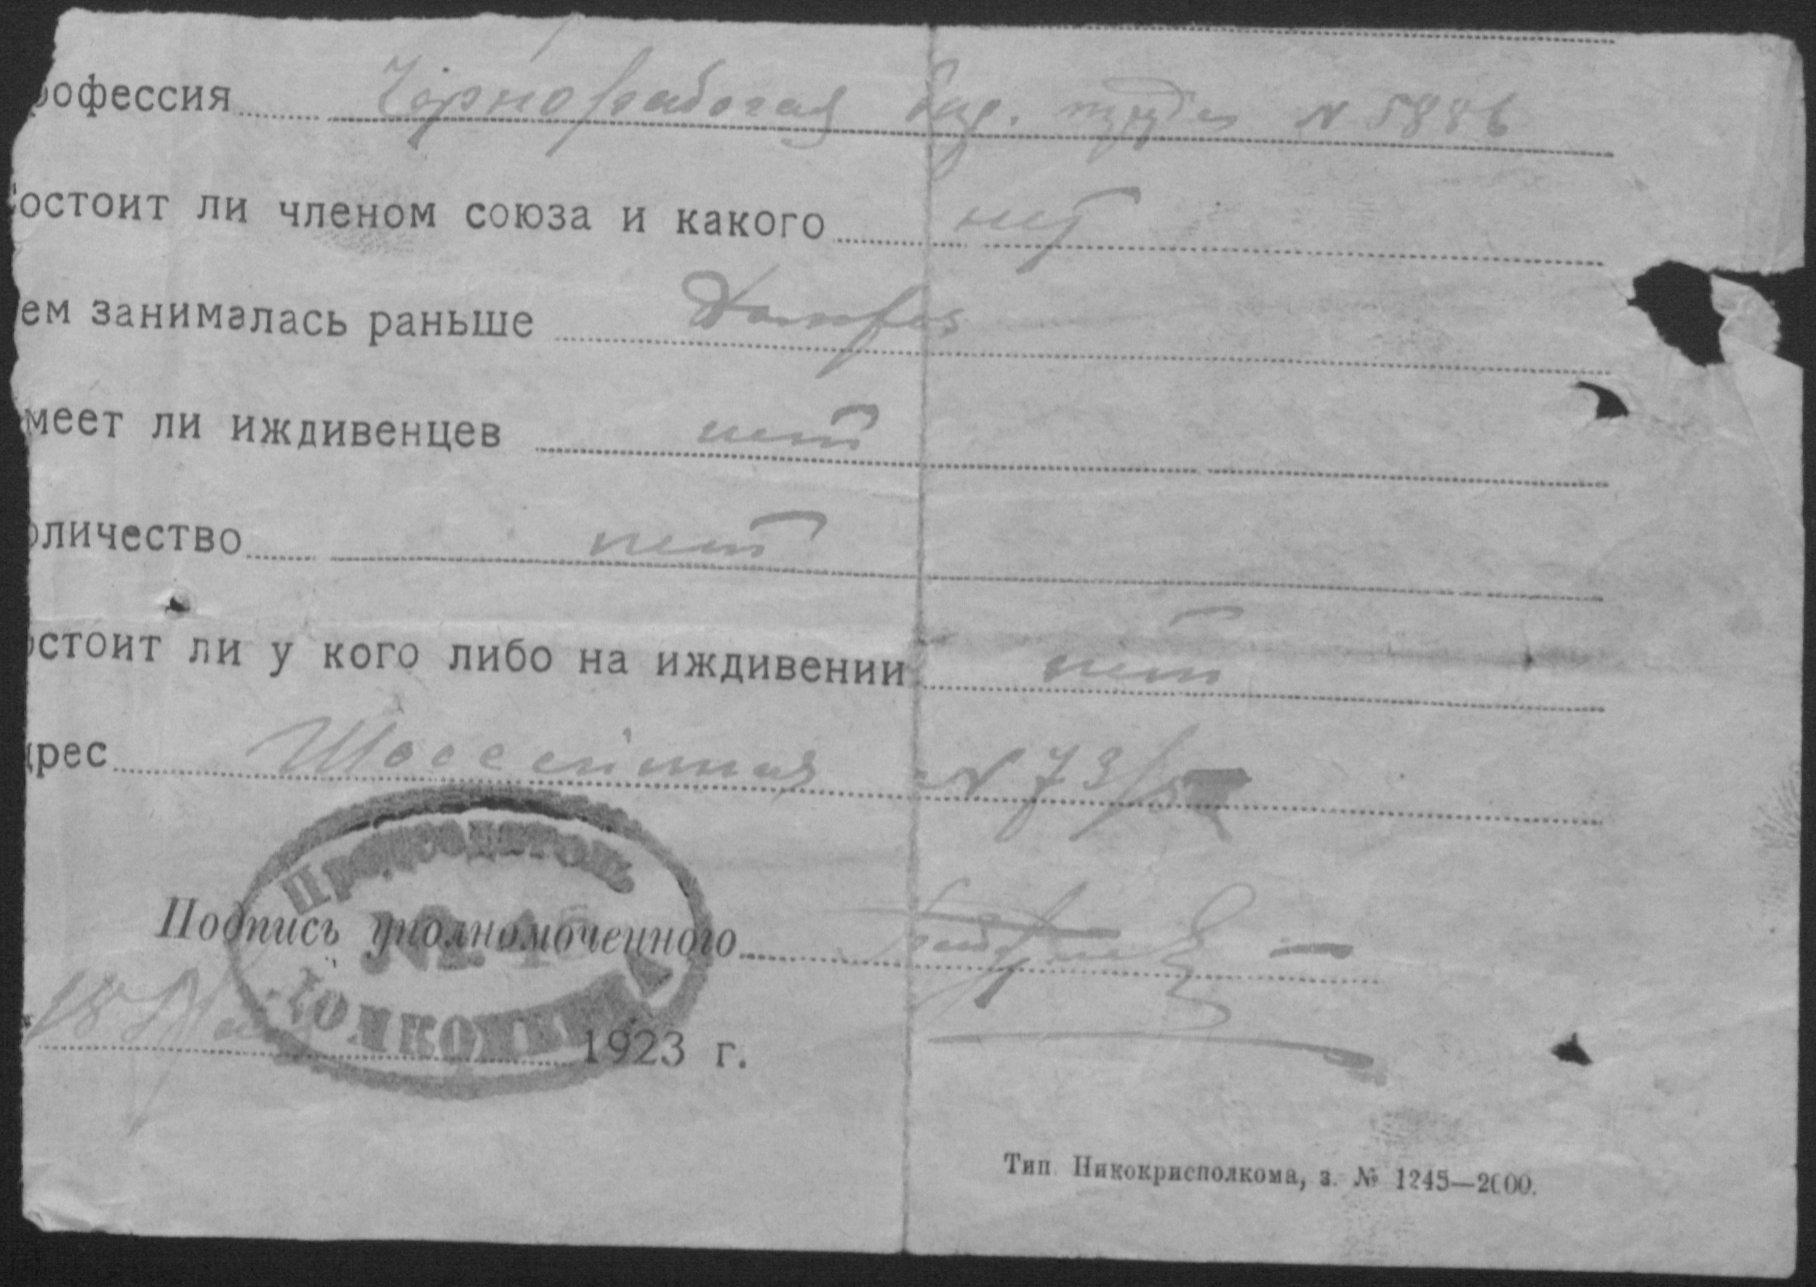 рофессия Чернорабочая бир. труда N 5886
Состоит ли членом союза и какого нет
ем занималась раньше
меет ли иждивенцев нет
оличество нет
остоит ли у кого либо на иждивении нет
дрес Шоссейная N 73/
Председатель
№
ДОМКОМЫНА
Подпись уполномоченного
18 Мая 1923 г.
Тип. Никокрисполкома, з. № 1245—2000.